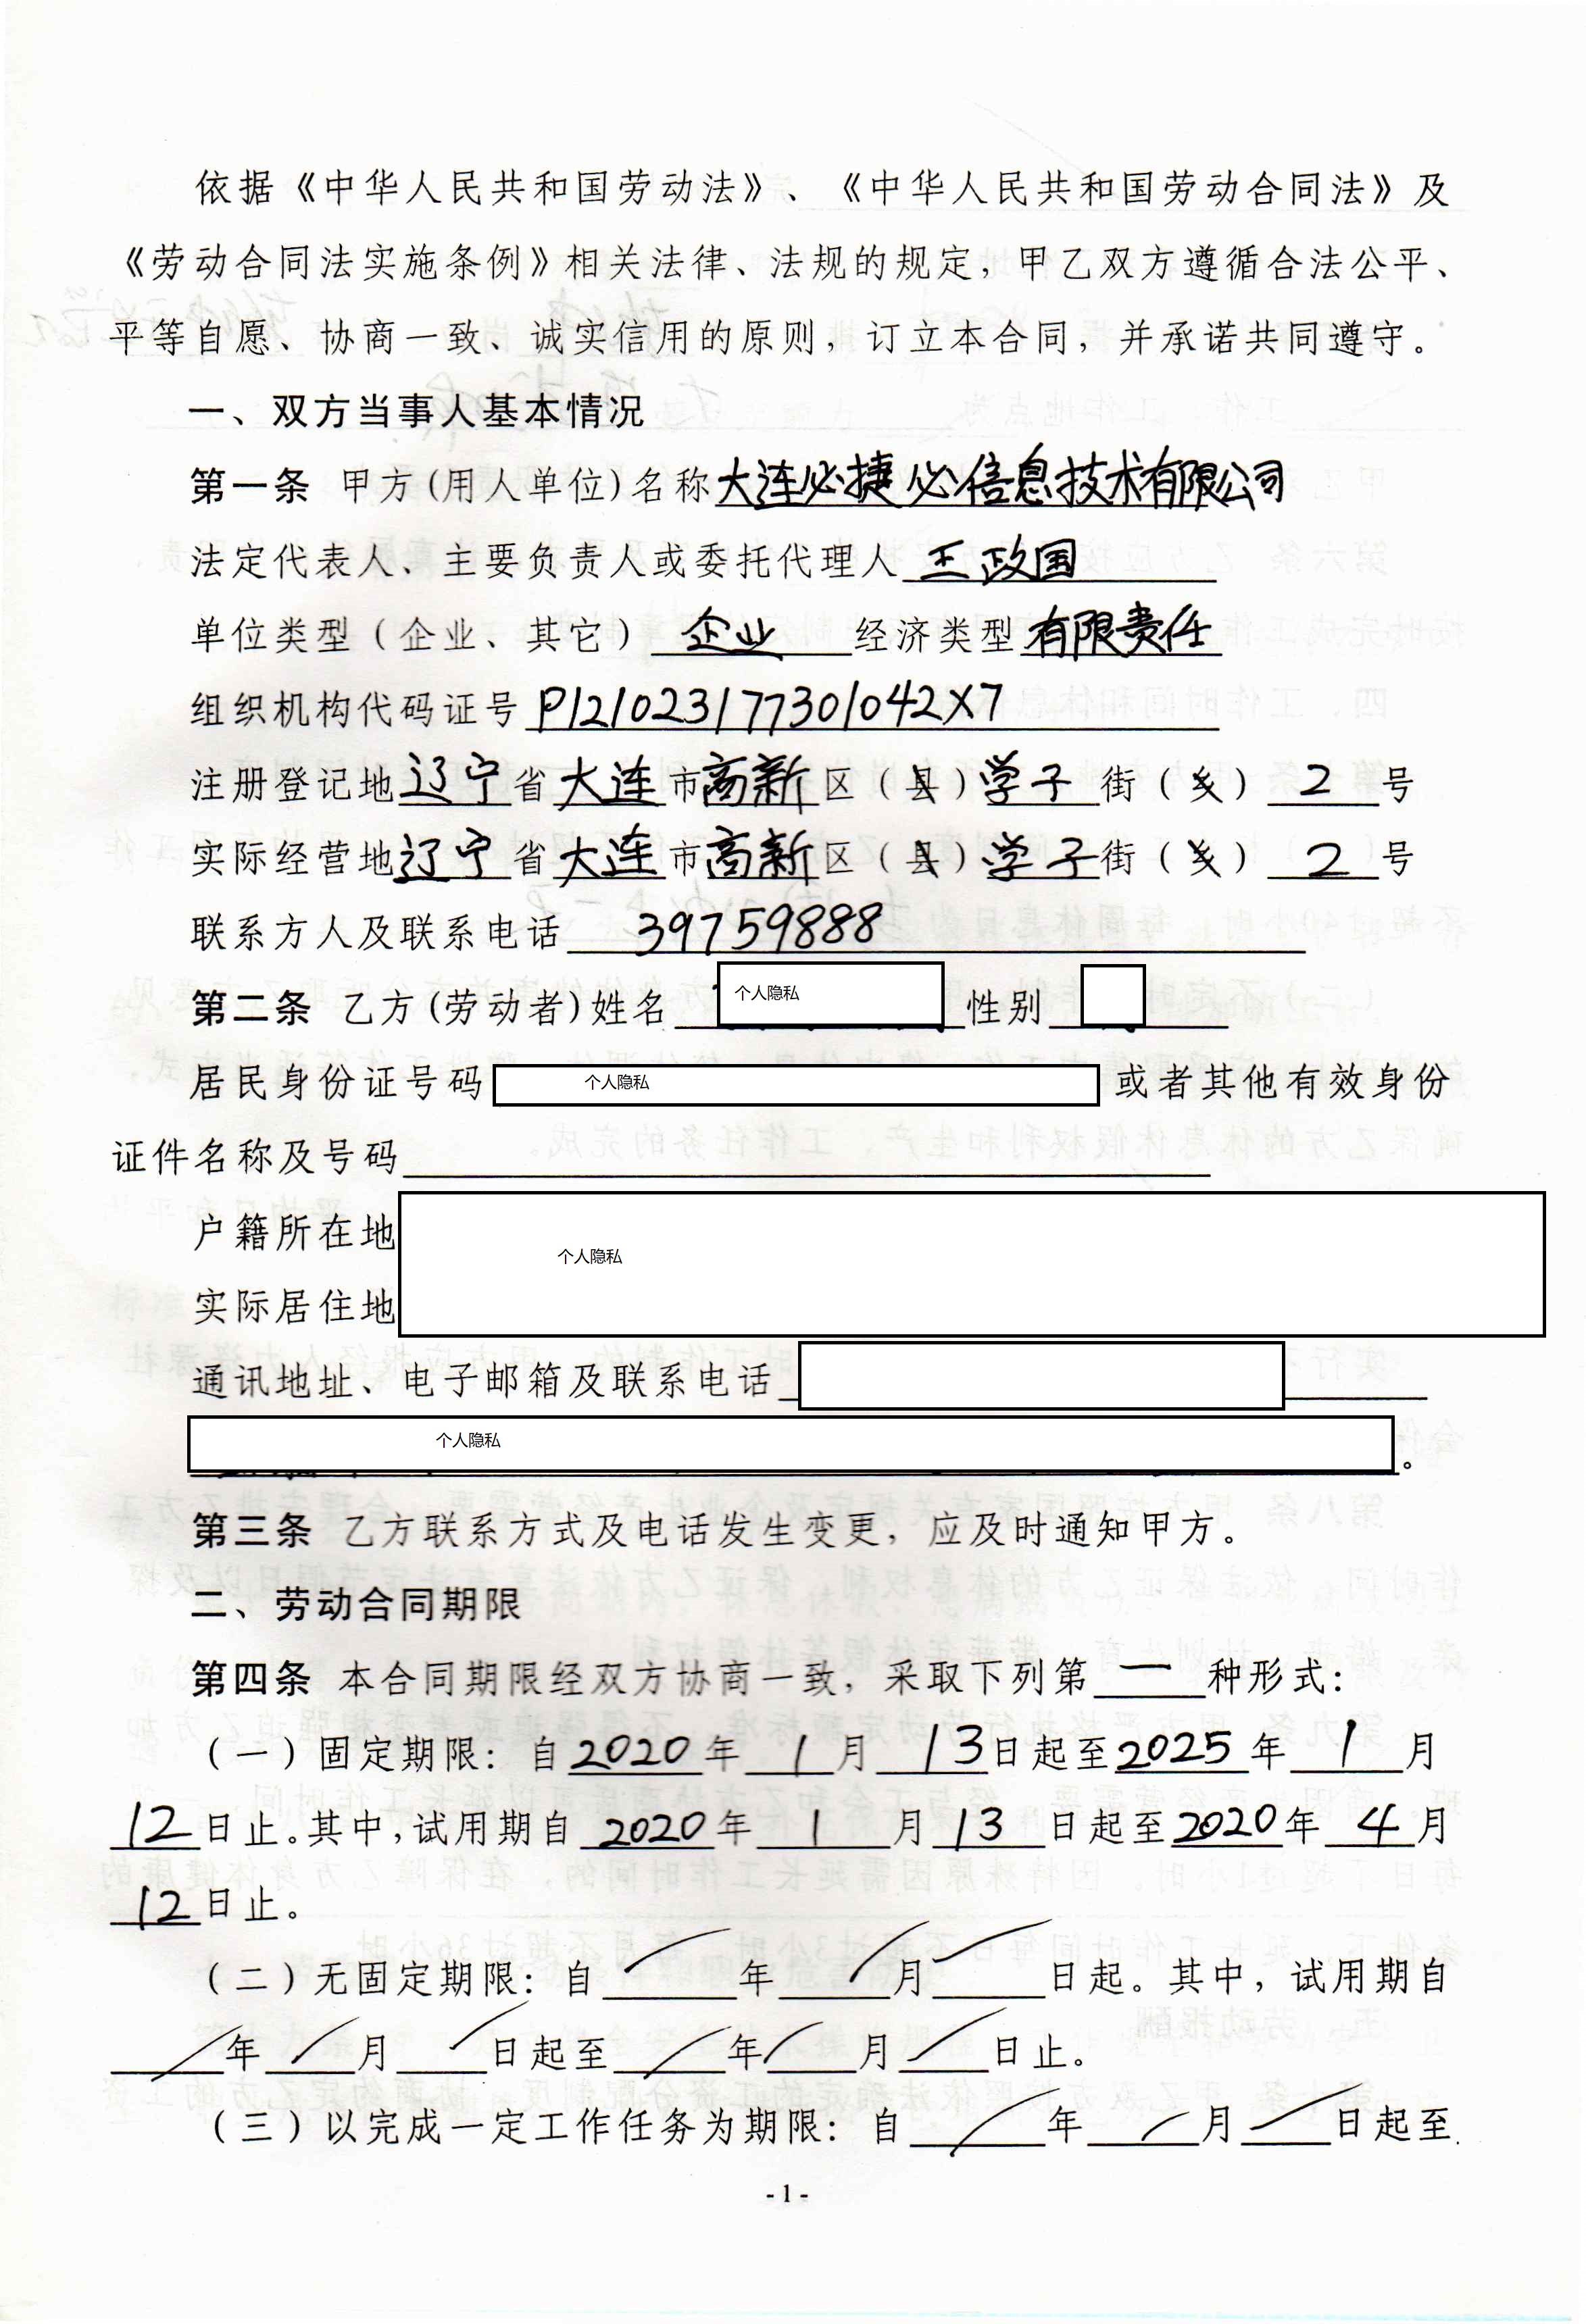 依据《中华人民共和国劳动法》、《中华人民共和国劳动合同法》及
《劳动合同法实施条例》相关法律、法规的规定，甲乙双方遵循合法公平、
平等自愿、协商一致、诚实信用的原则，订立本合同，并承诺共同遵守。
一、双方当事人基本情况
第一条 甲方(用人单位)名称大连必捷必信息技术有限公司
法定代表人、主要负责人或委托代理人 王政国
单位类型（企业、其它） 企业 经济类型 有限责任
组织机构代码证号 P121023177301042X7
注册登记地 辽宁 省 大连 市 高新 区（县）学子 街（乡） 2 号
实际经营地 辽宁 省 大连 市 高新 区（县）学子 街（乡） 2 号
联系方人及联系电话 39759888
第二条 乙方(劳动者)姓名 个人隐私 性别
居民身份证号码 个人隐私 或者其他有效身份
证件名称及号码
户籍所在地
个人隐私
实际居住地
通讯地址、电子邮箱及联系电话
个人隐私 。
第三条 乙方联系方式及电话发生变更，应及时通知甲方。
二、劳动合同期限
第四条 本合同期限经双方协商一致，采取下列第 一 种形式：
（一）固定期限：自 2020 年 1 月 13 日起至 2025 年 1 月
12 日止。其中，试用期自 2020 年 1 月 13 日起至 2020 年 4 月
12 日止。
（二）无固定期限：自 年 月 日起。其中，试用期自
年 月 日起至 年 月 日止。
（三）以完成一定工作任务为期限：自 年 月 日起至
- 1 -